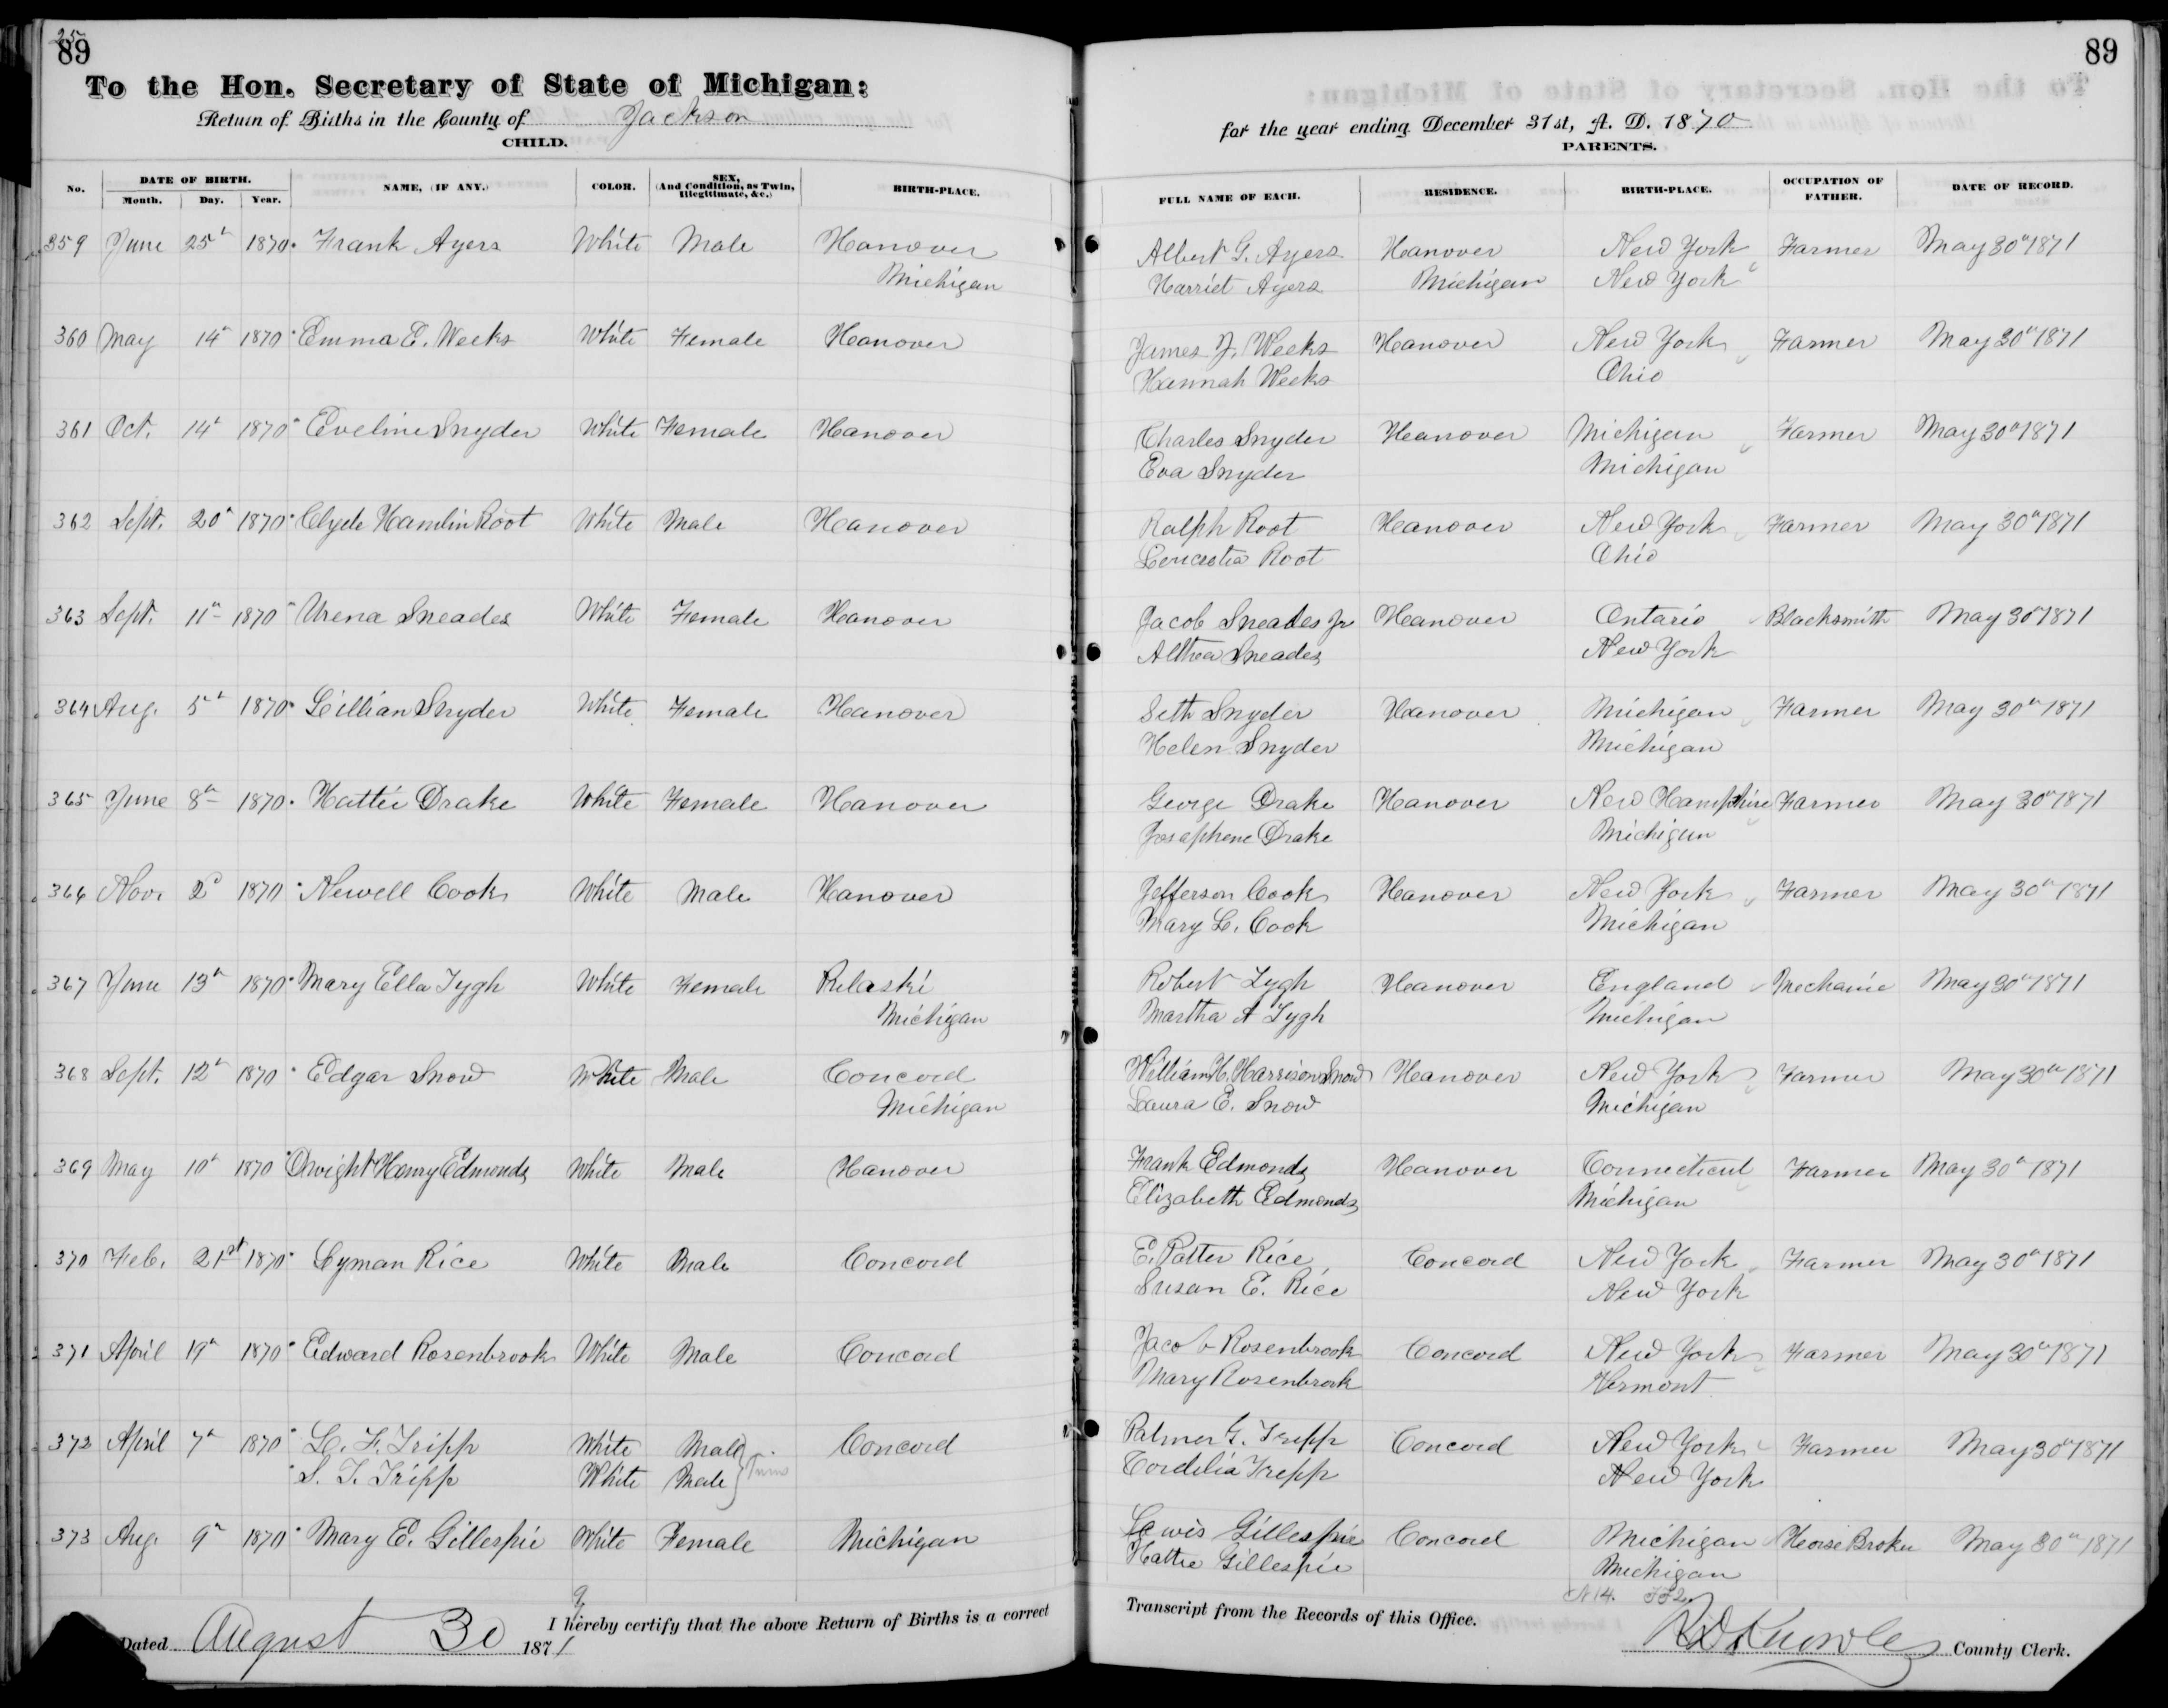 25
89
To the Hon. Secretary of State of Michigan:
Return of Births in the County of Jackson
CHILD.
No. DATE OF BIRTH. NAME, (IF ANY.) COLOR. SEX, (And Condition, as Twin, Illegitimate, &c.) BIRTH-PLACE.
Month. Day. Year.
359 June 25th 1870 Frank Ayers White Male Hanover
Michigan
360 May 14th 1870 Emma E. Weeks White Female Hanover
361 Oct. 14th 1870 Eveline Snyder White Female Hanover
362 Sept. 20th 1870 Clyde Hamlin Root White Male Hanover
363 Sept. 11th 1870 Urena Sneades White Female Hanover
364 Aug. 5th 1870 Lillian Snyder White Female Hanover
365 June 8th 1870 Hattie Drake White Female Hanover
366 Nov. 2d 1870 Newell Cook White Male Hanover
367 June 13th 1870 Mary Ella Tygh White Female Pulaski
Michigan
368 Sept. 12th 1870 Edgar Snow White Male Concord
Michigan
369 May 10th 1870 Dwight Henry Edmonds White Male Hanover
370 Feb. 21st 1870 Lyman Rice White Male Concord
371 April 19th 1870 Edward Rosenbrook White Male Concord
372 April 7th 1870 L. F. Tripp White Male Concord
S. T. Tripp White Male Twins
373 Aug. 9th 1870 Mary E. Gillespie White Female Michigan
9
I hereby certify that the above Return of Births is a correct
Dated August 30 1871
89
for the year ending December 31st, A. D. 1870
PARENTS.
FULL NAME OF EACH. RESIDENCE. BIRTH-PLACE. OCCUPATION OF FATHER. DATE OF RECORD.
Albert G. Ayers Hanover New York Farmer May 30th 1871
Harriet Ayers Michigan New York
James J. Weeks Hanover New York Farmer May 30th 1871
Hannah Weeks Ohio
Charles Snyder Hanover Michigan Farmer May 30th 1871
Eva Snyder Michigan
Ralph Root Hanover New York Farmer May 30th 1871
Root Ohio
Jacob Sneades Jr Hanover Ontario Blacksmith May 30th 1871
Althea Sneades New York
Seth Snyder Hanover Michigan Farmer May 30th 1871
Helen Snyder Michigan
George Drake Hanover New Hampshire Farmer May 30th 1871
Josaphene Drake Michigan
Jefferson Cook Hanover New York Farmer May 30th 1871
Mary L. Cook Michigan
Robert Tygh Hanover England Mechanic May 30th 1871
Martha A Tygh Michigan
William H. Harrison Snow Hanover New York Farmer May 30th 1871
Laura E. Snow Michigan
Frank Edmonds Hanover Connecticut Farmer May 30th 1871
Elizabeth Edmonds Michigan
E. Potter Rice Concord New York Farmer May 30th 1871
Susan E. Rice New York
Jacob Rosenbrook Concord New York Farmer May 30th 1871
Mary Rosenbrook Vermont
Palmer G. Tripp Concord New York Farmer May 30th 1871
Cordelia Tripp New York
Lewis Gillespie Concord Michigan Horse Broker May 30th 1871
Hattie Gillespie Michigan
N14. FF2
Transcript from the Records of this Office.
R D Knowles County Clerk.